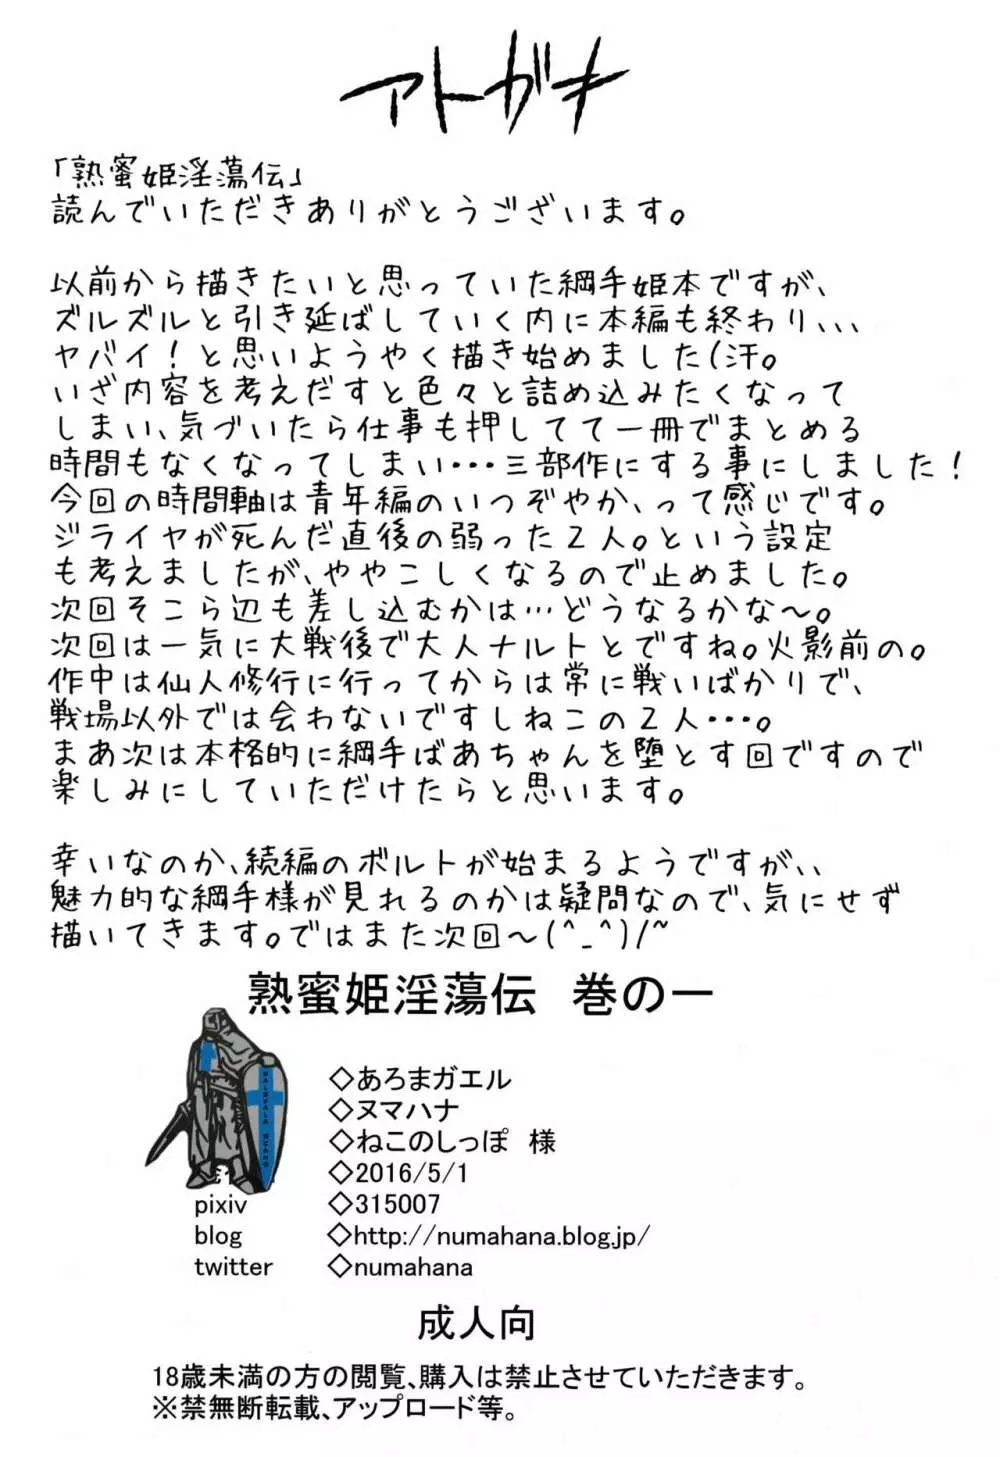 アトガキ
「熟蜜姫淫蕩伝」
読んでいただきありがとうございます。
以前から描きたいと思っていた綱手姫本ですが、
ズルズルと引き延ばしていく内に本編も終わり、、、
ヤバイ！と思いようやく描き始めました(汗。
いざ内容を考えだすと色々と詰め込みたくなって
しまい、気づいたら仕事も押してて一冊でまとめる
時間もなくなってしまい・・・三部作にする事にしました！
今回の時間軸は青年編のいつぞやか、って感じです。
ジライヤが死んだ直後の弱った２人。という設定
も考えましたが、ややこしくなるので止めました。
次回そこら辺も差し込むかは…どうなるかな〜。
次回は一気に大戦後で大人ナルトとですね。火影前の。
作中は仙人修行に行ってからは常に戦いばかりで、
戦場以外では会わないですしねこの２人・・・。
まあ次は本格的に綱手ばあちゃんを堕とす回ですので
楽しみにしていただけたらと思います。
幸いなのか、続編のボルトが始まるようですが、、
魅力的な綱手様が見れるのかは疑問なので、気にせず
描いてきます。ではまた次回〜(^_^)/~
熟蜜姫淫蕩伝　巻の一
◇あろまガエル
◇ヌマハナ
◇ねこのしっぽ　様
◇2016/5/1
pixiv ◇315007
blog ◇http://numahana.blog.jp/
twitter ◇numahana
成人向
18歳未満の方の閲覧、購入は禁止させていただきます。
※禁無断転載、アップロード等。